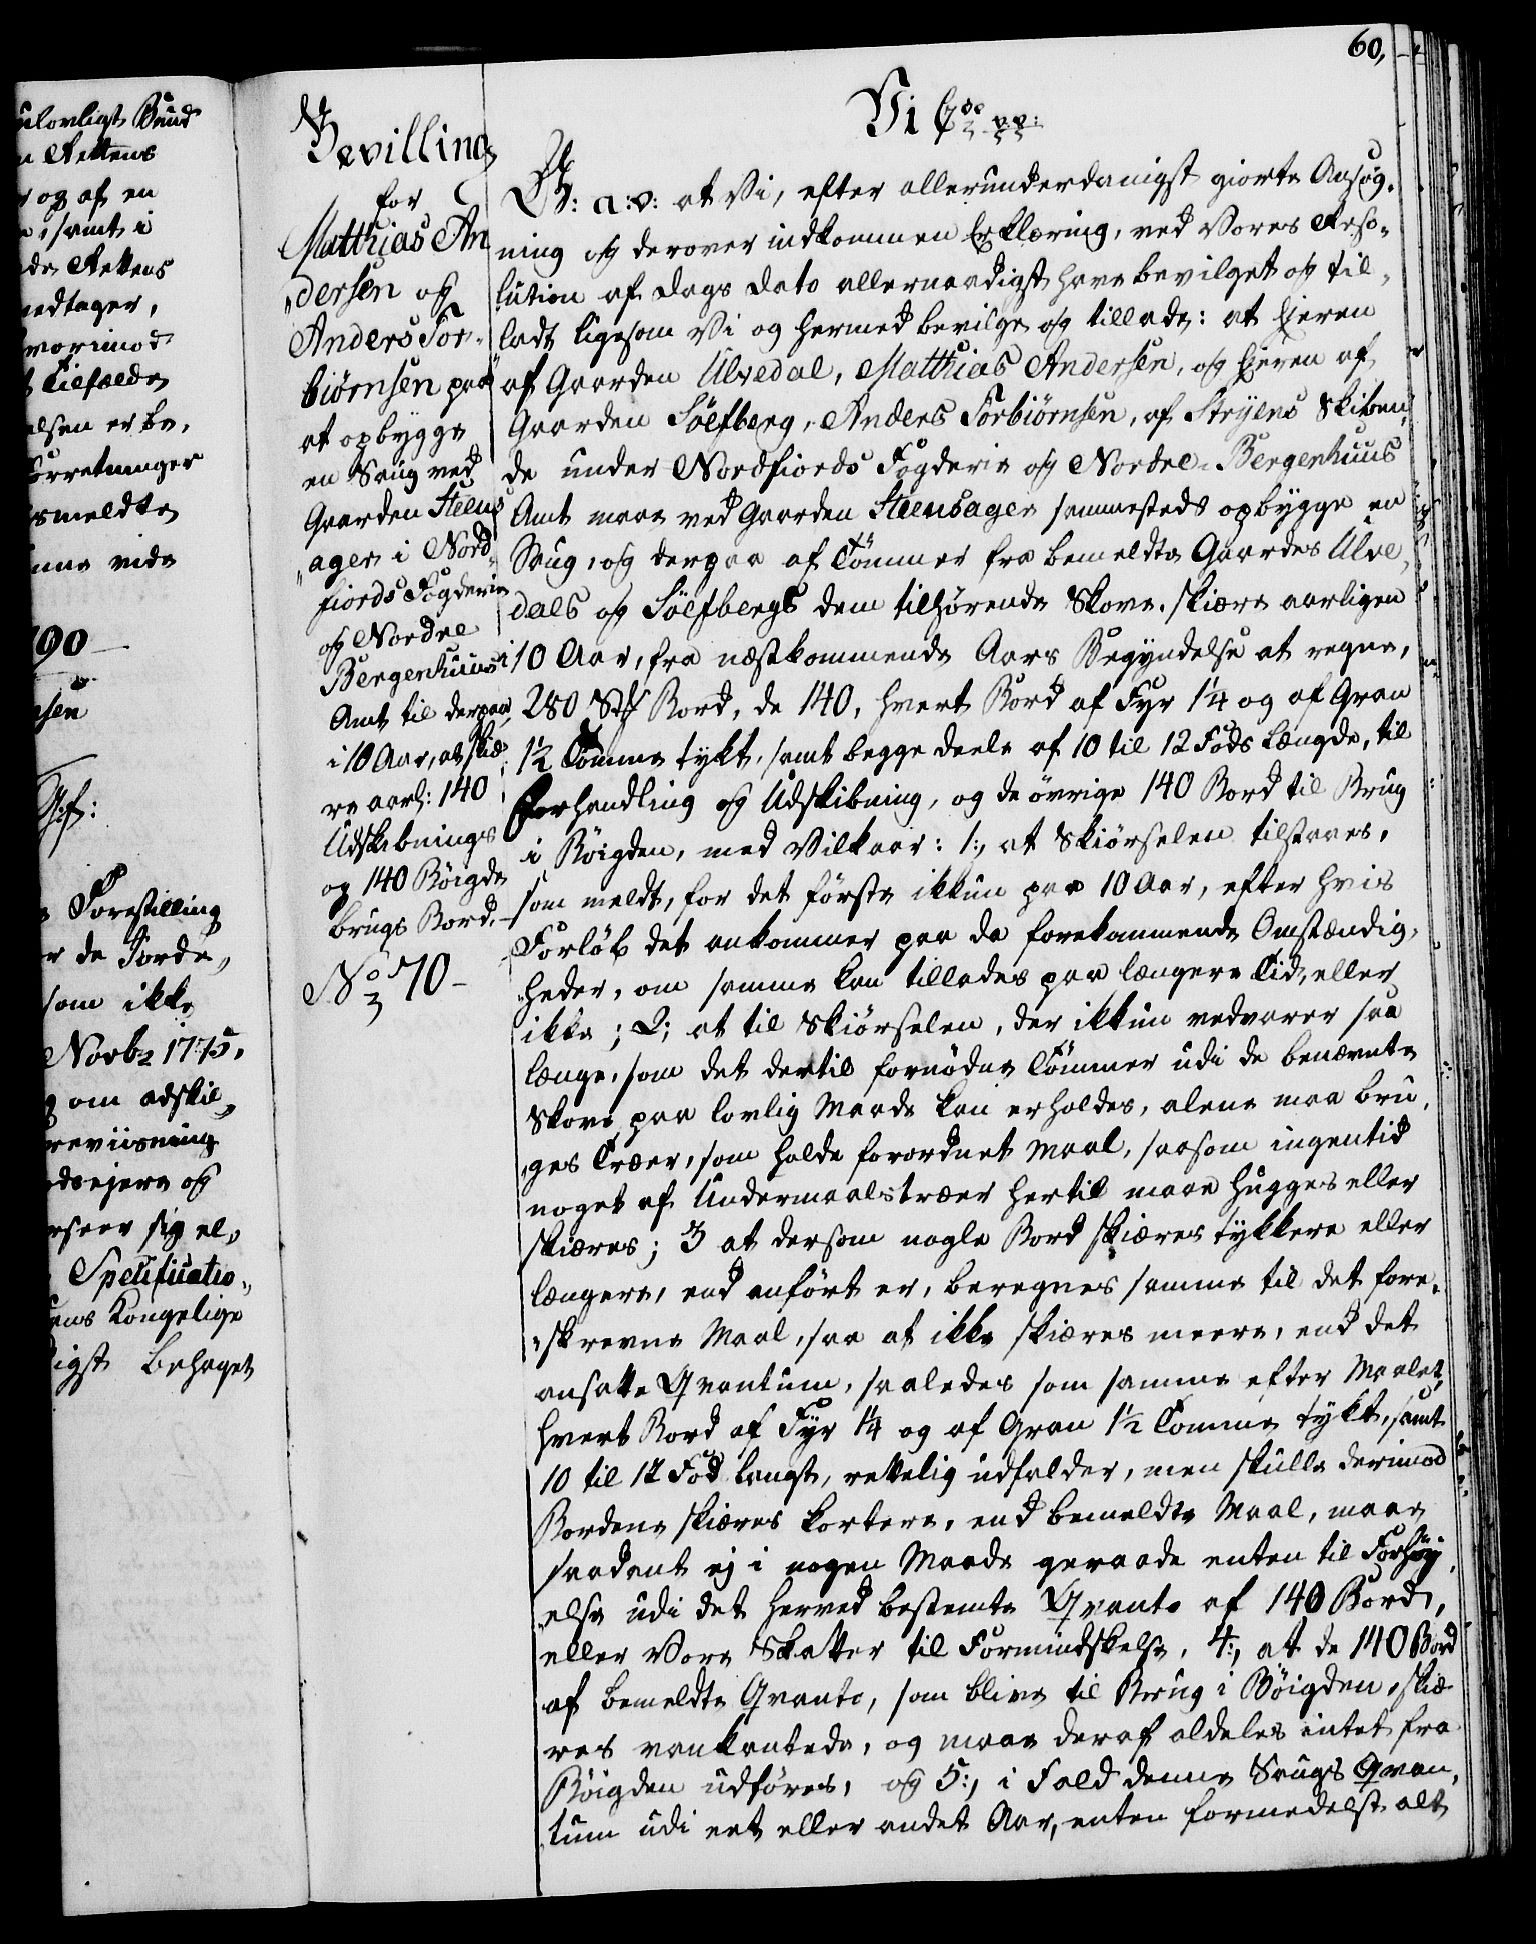 60,
ulovligt Brud
n Rettens
r og af en
e; samt i
nde Rettens
nedtager,
hvorimod
t Tilfælde
elsen er be,
Forretninger
smeldte
nne vide
790
nsen
G:f:
e Forestilling
r de Jorde,
som ikke
Novbr 1775,
g om adskil„
reviisning
dsejere og
rseer sig el„
Specificatio„
ens Kongelige
digst behaget
Bevilling
for
Matthias An
„dersen og
Anders Tor„
biørnsen paa
at opbygge
en Saug ved
Gaarden Steens
„ager i Nord„
fiords Fogderie
og Nordre
Bergenhuus
Amt til derpaa,
i 10 Aar, at skiæ
re aarl: 140
Udskibnings
og 140 Bøigde
brugs Bord.
No 70
Vi C 7de pp:
G: a: v: at Vi, efter allerunderdanigst giorte Ansøg„
ning og derover indkommen Erklæring, ved Vores Reso„
lution af Dags Dato allernaadigst have bevilget og til„
ladt ligesom Vi og hermed bevilge og tillade: at Ejeren
af Gaarden Ulvedal, Matthias Andersen, og Ejeren af
Gaarden Sölfberg, Anders Torbiörnsen, af Stryens Skibree„
de under Nordfiords Fogderie og Nordre Bergenhuus
Amt maae ved Gaarden Steensager sammesteds opbygge en
Saug, og derpaa af Tömmer fra bemeldte Gaardes Ulve„
dals og Sölfbergs dem tilhørende Skove, skiære aarligen
i 10 Aar, fra næstkommende Aars Begyndelse at regne,
280 Stk Bord, de 140, hvert Bord af Fyr 1¼ og af Gran
1½ Tomme tykt, samt begge deele af 10 til 12 Fods Længde, til
Forhandling og Udskibning, og de övrige 140 Bord til Brug
i Böigden, med Vilkaar: 1:, at Skiörselen tilstaaes,
som meldt, for det förste ikkun paa 10 Aar, efter hvis
Forlöb det ankommer paa de forekommende Omstændig„
„heder, om samme kan tillades paa længere Tid, eller
ikke; 2; at til Skiörselen, der ikkun vedvarer saa
længe, som det dertil fornödne Tömmer udi de benævnte
Skove paa lovlig Maade kan erholdes, alene maa bru„
„ges Træer, som holde forordnet Maal, saasom ingentid
noget af Undermaalstræer hertil maae hugges eller
skiæres; 3 at dersom nogle Bord skiæres tykkere eller
længere, end anfört er, beregnes samme til det fore„
„skrevne Maal, saa at ikke skiæres meere, end det
ansatte Qvantum, saaledes som samme efter Maalet,
hvert Bord af Fyr 1¼ og af Gran 1½ Tomme tykt, samt
10 til 12 Fod langt, rettelig udfalder, men skulle derimod
Bordene skiæres kortere, end bemeldte Maal, maae
saadant ej i nogen Maade geraade enten til Forhöj„
„else udi det herved bestemte Qvanto af 140 Bord,
eller Vore Skatter til Formindskelse, 4:, at de 140 Bord
af bemeldte Qvanto, som blive til Brug i Böigden, skiæ
res vankantede, og maae deraf aldeles intet fra
Böigden udföres, og 5:, i Fald denne Saugs Qvan„
tum udi eet eller andet Aar, enten formedelst alt